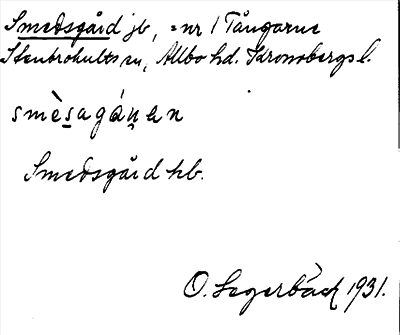 Smedsgård jb, = nr 1 Tångarne
Stenbrohults sn, Allbo hd. Kronobergs l.
smèsagán̥en
Smedsgård hb.
O. Segerbäck 1931.